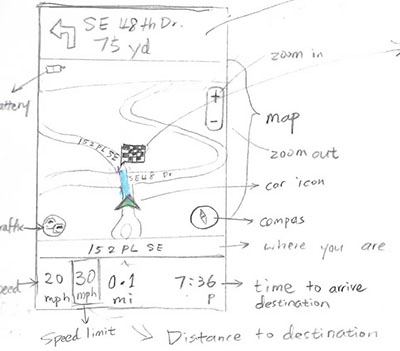 SE 48th Dr.
75 yd
zoom in
attery
+
-
map
152 PL SE
zoom out
SE 48 Dr
car icon
raffic
compas
152 PL SE
where you are
peed
20
mph
30
mph
0.1
mi
7:36
P
time to arrive
destination
Speed limit
Distance to destination